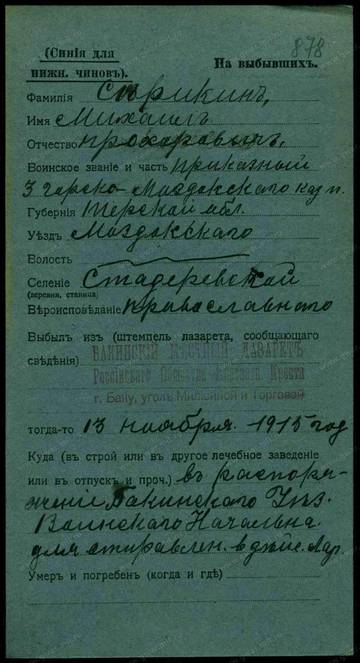 878
(Синія для
нижн. чиновъ).
На выбывшихъ.
Фамилія Сприкинъ,
Имя Михаилъ
Отчество Прохоровичъ,
Воинское званіе и часть приказный
3 горско-Моздокскаго каз п.
Губернія Терской обл.
Уѣздъ Моздокскаго
Волость
Селеніе Стадеревской
(деревня, станица)
Вѣроисповѣданіе Православнаго
Выбылъ изъ (штемпель лазарета, сообщающаго
свѣдѣнія) БАКИНСКІЙ МѢСТНЫЙ ЛАЗАРЕТЪ
Россійскаго Общества Краснаго Креста
г. Баку, уголъ Милютинской и Торговой
тогда-то 13 ноября 1915 год
Куда (въ строй или въ другое лечебное заведеніе
или въ отпускъ и проч.) въ распоря-
женіи Бакинскаго Уѣз.
Воинскаго Начальн.
для отправлен. въ дѣйс. Арм.
Умеръ и погребенъ (когда и гдѣ)